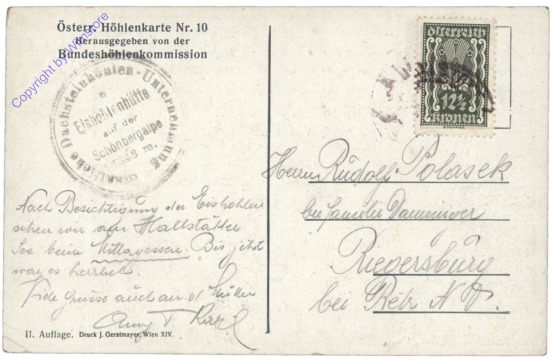 Österr. Höhlenkarte Nr. 10
Herausgegeben von der
Bundeshöhlenkommission
Copyright by Wiesn.ore
Dachsteinhöhlen-Unternehmung
auf der
Schönbergalpe
österreich
12½
kronen
Herrn Rudolf Polasek
bei Familie
Riegersburg
bei Retz N. Ö.
Nach Besichtigung der Eishöhlen
sehen wir am Hallstätter
See beim Mittagessen. Bis jetzt
war es herrlich.
Viele Grüsse auch an
II. Auflage. Druck J. Gerstmayer, Wien XIV.